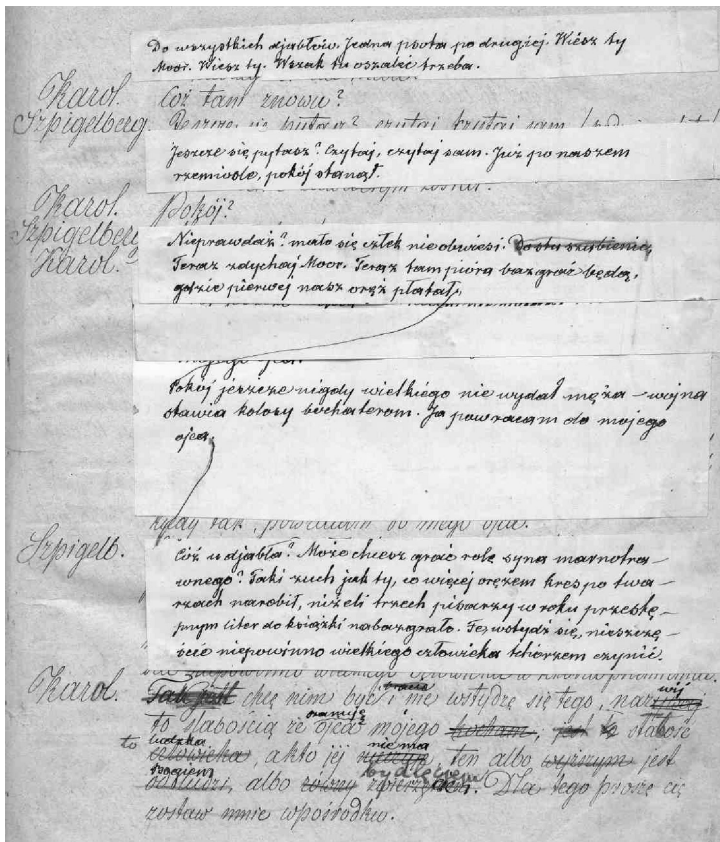 Do wszystkich djabłów. Jedna psota po drugiej. Wiesz ty
Moor. Wiesz ty. Wszak tu oszaleć trzeba.
Karol. Cóż tam znowu?
Szpigelberg. Jeszcze się pytasz? czytaj czytaj sam
Jeszcze się pytasz? Czytaj, czytaj sam. Już po naszem
rzemiośle, pokój stanął.
Karol. Pokój?
Szpigelberg
Nieprawdaż? mało się człek nieobwiesi.
Karol.
Teraz zdychaj Moor. Teraz tam pióra bazgrać będą,
gdzie pierwej nasz oręż płatał.
Pokój jeszcze nigdy wielkiego nie wydał męża – wojna
stawia kolosy bochaterom. Ja powracam do mojego
ojca.
tak, powracam do mego ojca.
Szpigelb.
Cóż u djabła? Może chcesz grać rolę syna marnotra-
wnego? Taki zuch jak ty, co więcej orężem kres po twa-
rzach narobił, niżeli trzech pisarzy w roku przestę-
pnym liter do książki nabazgrało. Fe, wstydź się, nieszczę-
ście niepowinno wielkiego człowieka tchórzem czynić.
Karol. Tak jest chcę nim być i nie wstydzę się tego,
to słabością że ojca szanuję mojego kocham, jest to słabość
to ludzka człowieka, a kto jej nie ma, ten albo wyższym jest
bogiem od ludzi, albo równy bydlęciem zwierzętom. Dla tego proszę cię
zostaw mnie wpośrodku.